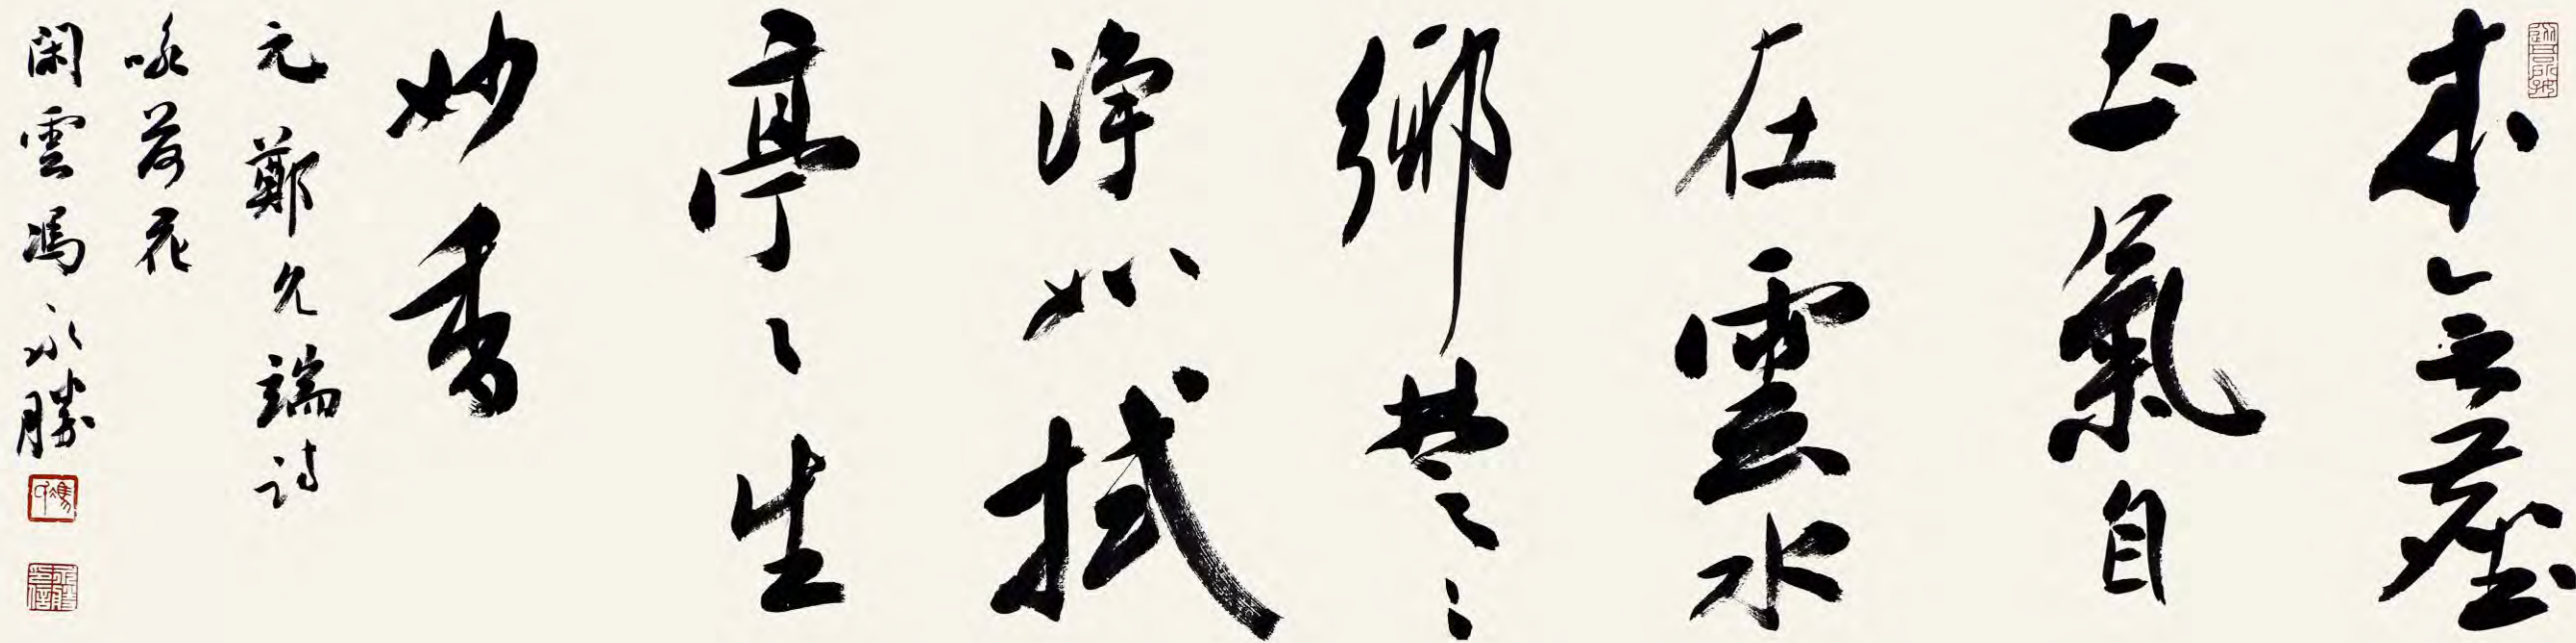 本無塵
土氣自
在雲水
鄉楚〻
淨如拭
亭〻生
妙香
元鄭允端詩
詠荷花
閑雲馮永勝